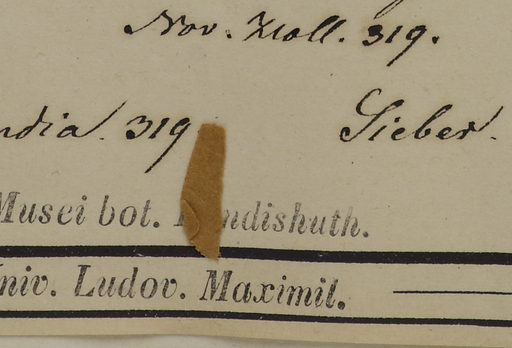 Nov. Holl. 319.
ndia. 319 Sieber.
Musei bot. Landishuth.
Univ. Ludov. Maximil.